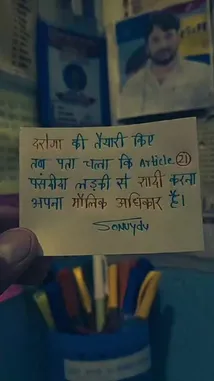 दरोगा की तैयारी किए
तब पता चला कि Article (21)
पसंदीदा लड़की से शादी करना
अपना मौलिक अधिकार है।